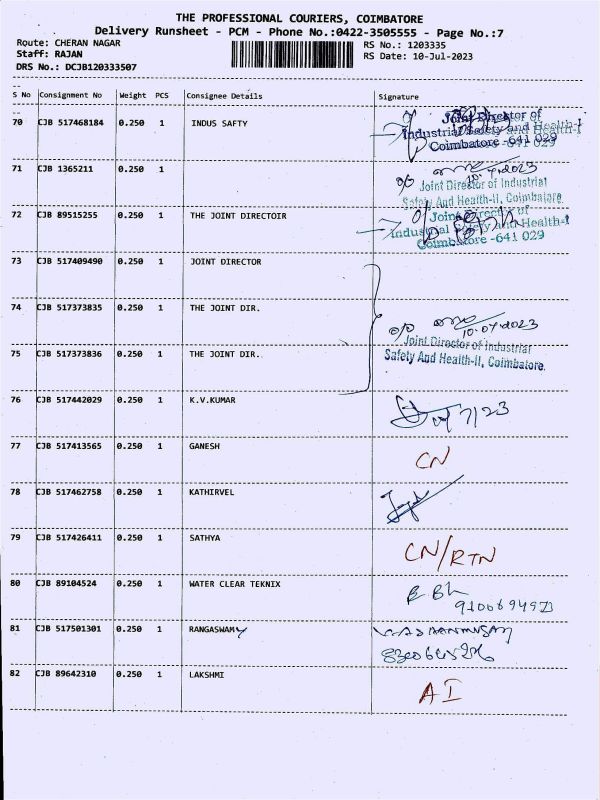 THE PROFESSIONAL COURIERS, COIMBATORE
Delivery Runsheet - PCM - Phone No.:0422-3505555 - Page No.:7
Route: CHERAN NAGAR RS No.: 1203335
Staff: RAJAN RS Date: 10-Jul-2023
DRS No.: DCJB120333507
S No Consignment No Weight PCS Consignee Details Signature
70 CJB 517468184 0.250 1 INDUS SAFTY
Joint Director of
Industrial Safety and Health-I
Coimbatore -641 029
71 CJB 1365211 0.250 1
10.7.2023
Joint Director of Industrial
Safety And Health-II, Coimbatore
72 CJB 89515255 0.250 1 THE JOINT DIRECTOIR
Joint Director of
Industrial Safety and Health-I
Coimbatore -641 029
73 CJB 517409490 0.250 1 JOINT DIRECTOR
74 CJB 517373835 0.250 1 THE JOINT DIR.
10.07.2023
Joint Director of Industrial
Safety And Health-II, Coimbatore.
75 CJB 517373836 0.250 1 THE JOINT DIR.
76 CJB 517442029 0.250 1 K.V.KUMAR
77 CJB 517413565 0.250 1 GANESH CN
78 CJB 517462758 0.250 1 KATHIRVEL
79 CJB 517426411 0.250 1 SATHYA CN/RTN
80 CJB 89104524 0.250 1 WATER CLEAR TEKNIX
81 CJB 517501301 0.250 1 RANGASWAMY
82 CJB 89642310 0.250 1 LAKSHMI AI